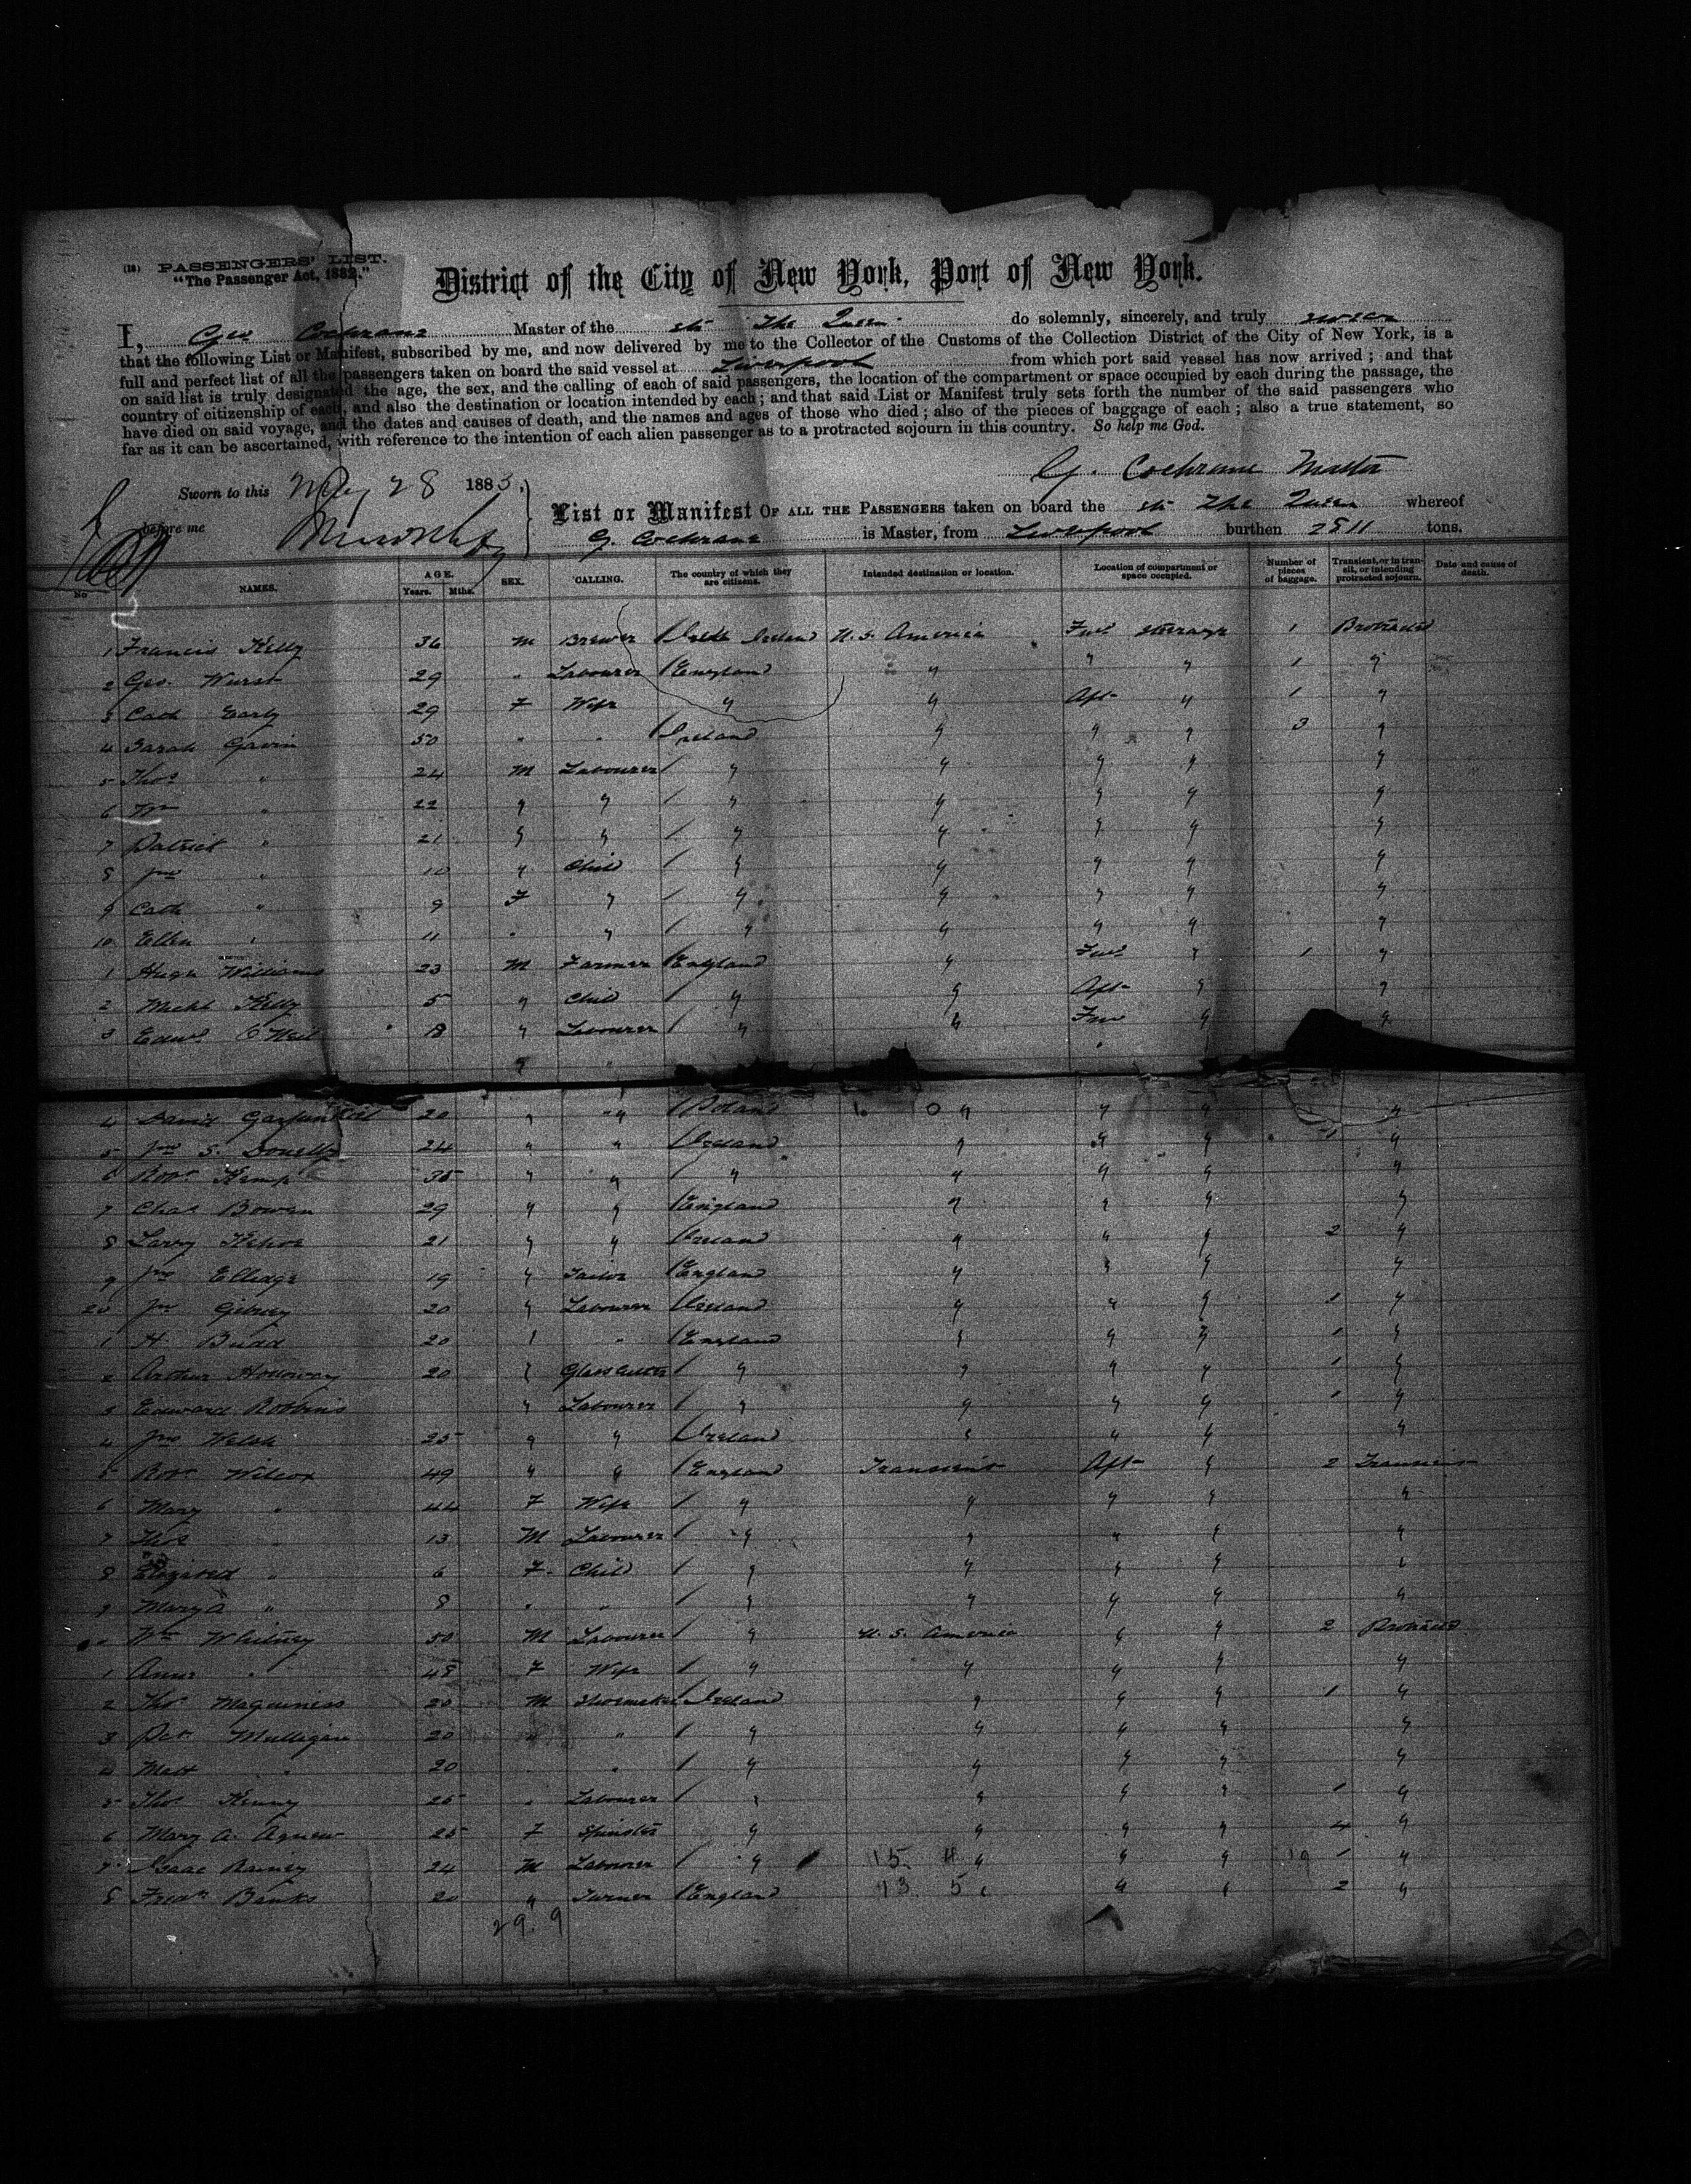 (18) PASSENGERS' LIST.
"The Passenger Act, 1882."
District of the City of New York, Port of New York.
I, Geo Cochrane Master of the str The Queen do solemnly, sincerely, and truly swear
that the following List or Manifest, subscribed by me, and now delivered by me to the Collector of the Customs of the Collection District of the City of New York, is a
full and perfect list of all the passengers taken on board the said vessel at Liverpool from which port said vessel has now arrived; and that
on said list is truly designated the age, the sex, and the calling of each of said passengers, the location of the compartment or space occupied by each during the passage, the
country of citizenship of each, and also the destination or location intended by each; and that said List or Manifest truly sets forth the number of the said passengers who
have died on said voyage, and the dates and causes of death, and the names and ages of those who died; also of the pieces of baggage of each; also a true statement, so
far as it can be ascertained, with reference to the intention of each alien passenger as to a protracted sojourn in this country. So help me God.
G. Cochrane Master
Sworn to this May 28 1883,
before me
List or Manifest OF ALL THE PASSENGERS taken on board the str The Queen whereof
G. Cochrane is Master, from Liverpool burthen 2811 tons.
No NAMES. AGE. Years. Mths. SEX. CALLING. The country of which they are citizens. Intended destination or location. Location of compartment or space occupied. Number of pieces of baggage. Transient, or in transit, or intending protracted sojourn. Date and cause of death.
1 Francis Kelly 36 M Brewer Ireland U.S. America Fwd steerage 1 Protracted
2 Geo. Wurst 29 " Labourer England " " " 1 "
3 Cath Early 29 F Wife " " Aft " 1 "
4 Sarah Gavin 50 " " Ireland " " " 3 "
5 Thos " 24 M Labourer " " " " "
6 Wm " 22 " " " " " " "
7 Patrick " 21 " " " " " " "
8 Jno " " Child " " " " "
9 Cath " 9 F " " " " " "
10 Ellen " 11 " " " " " " "
1 Hugh Williams 23 M Farmer England " Fwd " 1 "
2 Michl Kelly 5 " Child " " Aft " "
3 Edwd O'Neil 18 " Labourer " " Fwd " "
4 David Garfunkel 20 " " Poland " " " "
5 Jno S. Donelly 24 " " Ireland " " " 1 "
6 Robt Kemp 35 " " " " " " "
7 Chas Bowen 29 " " England " " " "
8 Larry Kehoe 21 " " Ireland " " " 2 "
9 Jno Elledge 19 " Tailor England " " " "
20 Jno Gibney 20 " Labourer Ireland " " " 1 "
1 H Budd 20 " " England " " " 1 "
2 Arthur Holloway 20 " Glass Cutter " " " " 1 "
3 Edward Robbins " Labourer " " " " 1 "
4 Jno Welsh 25 " " Ireland " " " "
5 Robt Wilcox 49 " " England Transient Aft " 2 Transient
6 Mary " 44 F Wife " " " " "
7 Thos " 13 M Labourer " " " " "
8 Elizabeth " 6 F Child " " " " "
9 Mary A " 8 " " " " " " "
Wm Whitney 50 M Labourer " U.S. America " " 2 Protracted
1 Anne " 48 F Wife " " " " "
2 Thos Maguiness 20 M Shoemaker Ireland " " " 1 "
3 Pat Mulligan 20 " " " " " " "
4 Matt " 20 " " " " " " "
5 Thos Kenny 25 " Labourer " " " " 1 "
6 Mary A. Agnew 25 F Spinster " " " " 4 "
7 Isaac Rainey 24 M Labourer " 15. 4 " " " 19 1 "
8 Fredk Banks 20 " Turner England 13. 5 " " " 2 "
29. 9